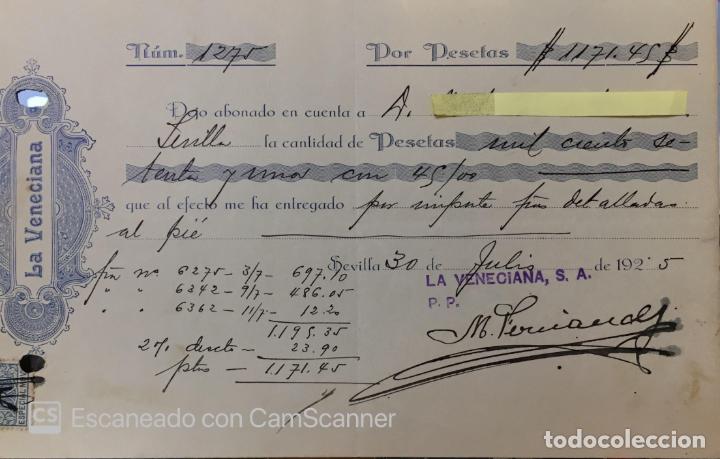 Núm. 1275 Por Pesetas # 1171.45 #
La Veneciana
Dejo abonado en cuenta a D.
Sevilla la cantidad de Pesetas mil ciento se-
tenta y unos con 45/00
que al efecto me ha entregado por importe fras detalladas
al pié
Sevilla 30 de Julio de 1925
LA VENECIANA, S. A.
P. P.
fra nº 6275 - 3/7 - 697.10
" " 6342 - 9/7 - 486.05
" " 6362 - 11/7 - 12.20
1.195.35
2% dscto - 23.90
ptas - 1.171.45
ESPECIAL
CS Escaneado con CamScanner
todocoleccion